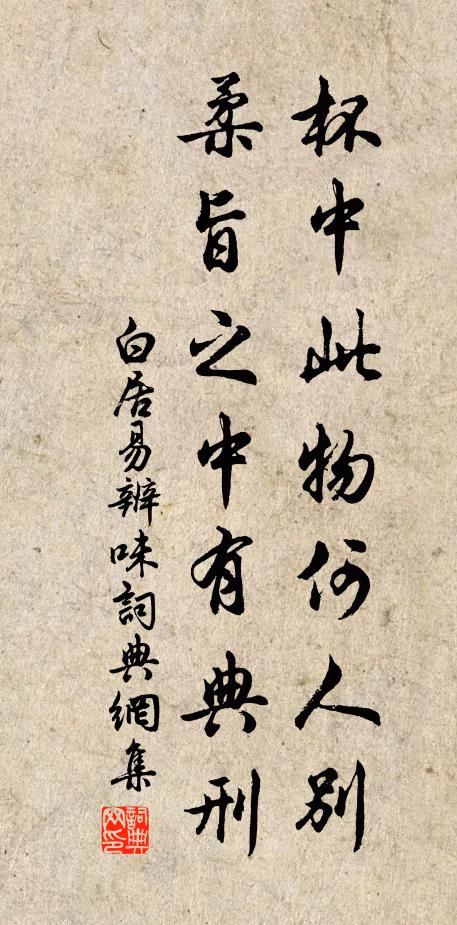 杯中此物何人別
柔旨之中有典刑
白居易辨味詞典網集
詞典
网印